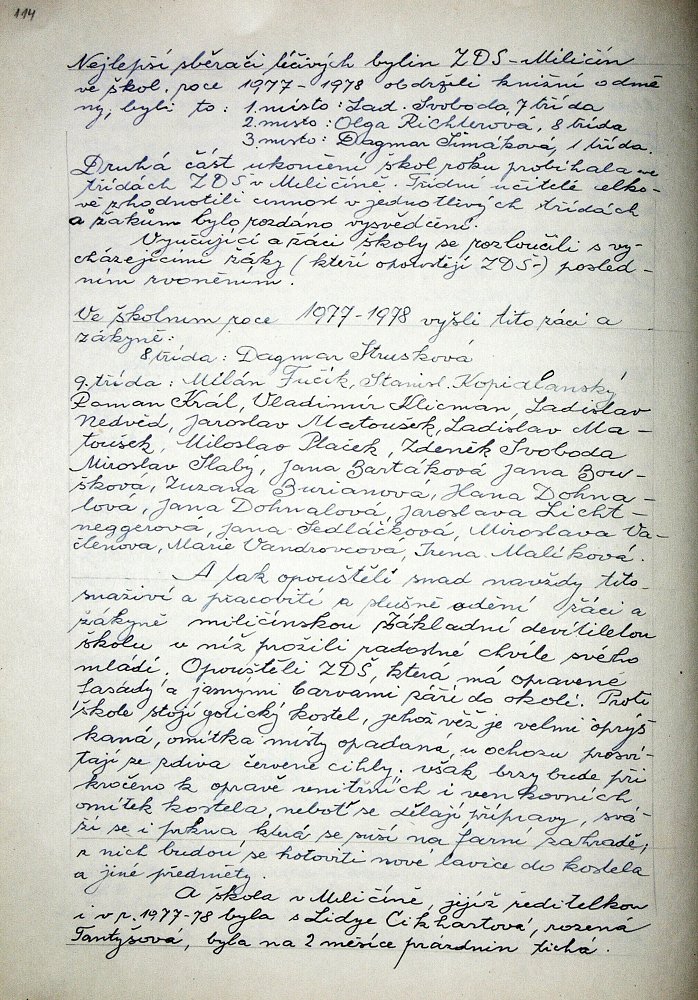 114
Nejlepší sběrači léčivých bylin ZDŠ-Miličín
ve škol. roce 1977-1978 obdrželi knižní odmě
ny, byli to: 1. místo: Lad. Svoboda, 7 třída
2. místo: Olga Richterová, 8 třída
3. místo: Dagmar Šimáková, 1 třída.
Druhá část ukončení škol roku probíhala ve
třídách ZDŠ v Miličíně. Třídní učitelé celko-
vě zhodnotili činnost v jednotlivých třídách
a žákům bylo rozdáno vysvědčení.
Vyučující a žáci školy se rozloučili s vy-
cházejícími žáky (kteří opouštějí ZDŠ-) posled-
ním zvoněním.
Ve školním roce 1977-1978 vyšli tito žáci a
žákyně:
8 třída: Dagmar Strusková
9. třída: Milán Fučík, Stanisl. Kopidlanský
Roman Král, Vladimír Klicman, Ladislav
Nedvěd, Jaroslav Matoušek, Ladislav Ma-
toušek, Miloslav Ptáček, Zdeněk Svoboda
Miroslav Slabý, Jana Bartáková Jana Bou-
šková, Zuzana Burianova, Hana Dohna-
lová, Jana Dohnalová, Jaroslava Licht-
neggerová, Jana Sedláčková, Miroslava Va-
členova, Marie Vandrovcová, Irena Malíková.
A tak opouštěli snad navždy tito
snaživí a pracovití a slušně oděni žáci a
žákyně miličínskou Základní devítiletou
školu v níž prožili radostné chvíle svého
mládí. Opouštěli ZDŠ, která má opravené
fasády a jasnými barvami září do okolí. Proti
škole stojí gotický kostel, jehož věž je velmi oprýs
kaná, omítka místy opadaná, u ochozu prosví-
tají ze zdiva červené cihly; však brzy bude při
kročeno k opravě vnitřních i venkovních
omítek kostela, neboť se dělají přípravy, svá-
ží se i prkna která se suší na farní zahradě,
z nich budou se hotoviti nové lavice do kostela
a jiné předměty.
A škola v Miličíně, jejíž ředitelkou
i v r. 1977-78 byla s Lidye Cikhartová, rozená
Tantyšová, byla na 2 měsíce prázdnin tichá.